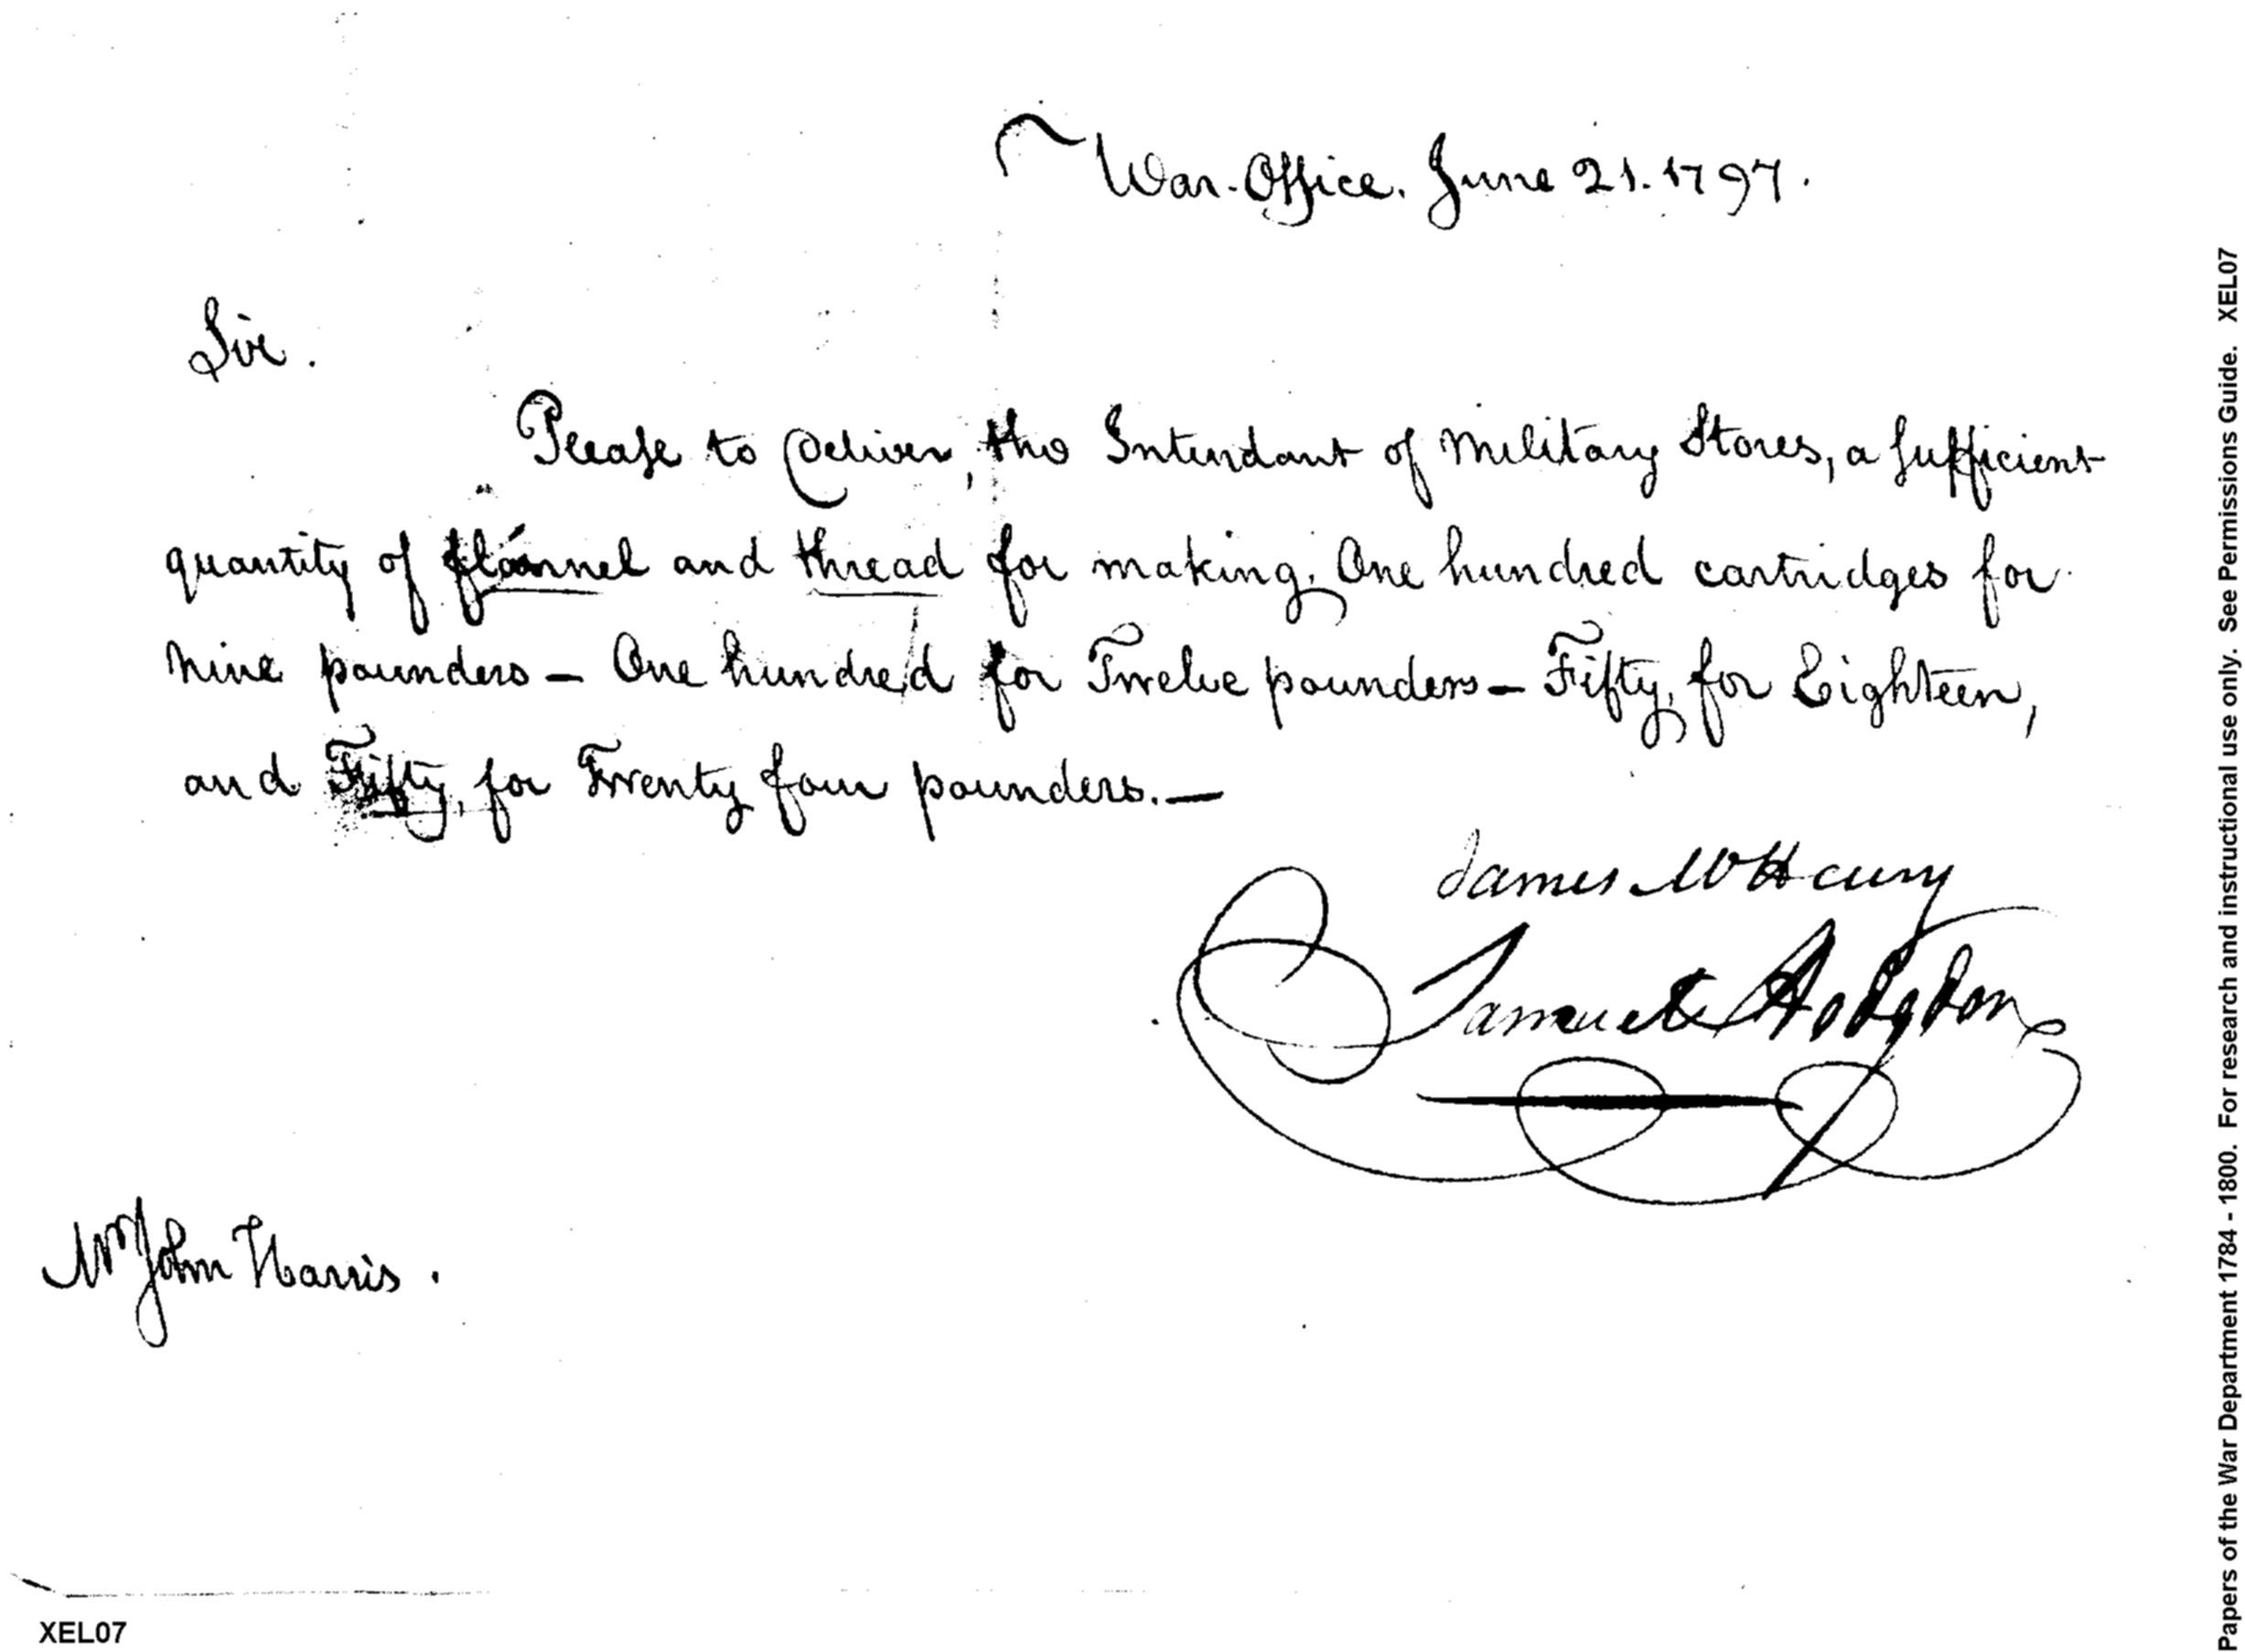 War-Office. June 21. 1797.
Sir.
Please to Deliver, the Intendant of Military Stores, a sufficient
quantity of flannel and thread for making, One hundred cartridges for
nine pounders — One hundred for Twelve pounders — Fifty, for Eighteen,
and Fifty, for Twenty four pounders. —
James McHenry
Samuel Hodgdon
Mr John Harris.
XEL07
Papers of the War Department 1784 - 1800. For research and instructional use only. See Permissions Guide. XEL07